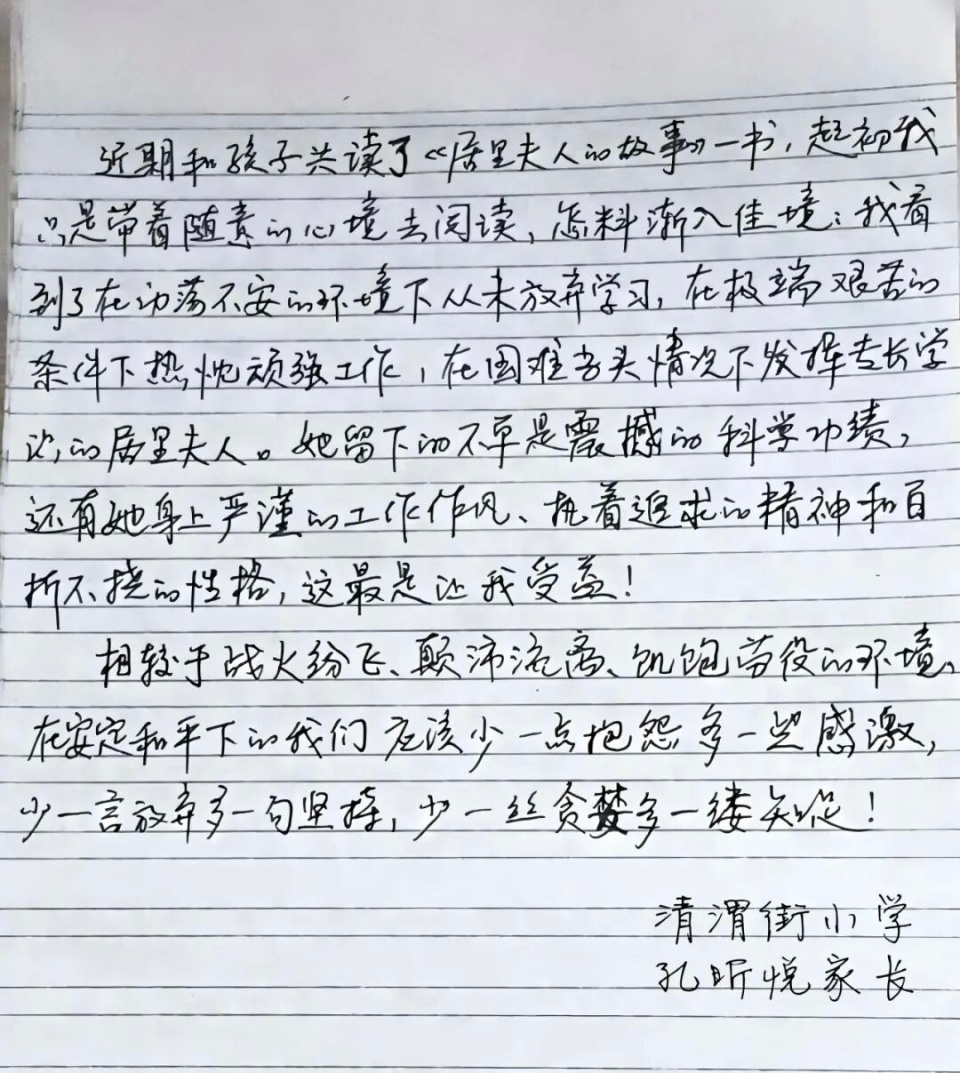 近期和孩子共读了《居里夫人的故事》一书，起初我
只是带着随意的心境去阅读，怎料渐入佳境：我看
到了在动荡不安的环境下从未放弃学习，在极端艰苦的
条件下热忱顽强工作，在困难当头情况下发挥专长学
识的居里夫人。她留下的不单是震撼的科学功绩，
还有她身上严谨的工作作风、执着追求的精神和百
折不挠的性格，这最是让我受益！
相较于战火纷飞、颠沛流离、饥饱苦役的环境，
在安定和平下的我们应该少一点抱怨多一些感激，
少一言放弃多一句坚持，少一丝贪婪多一缕知足！
清渭街小学
孔昕悦家长